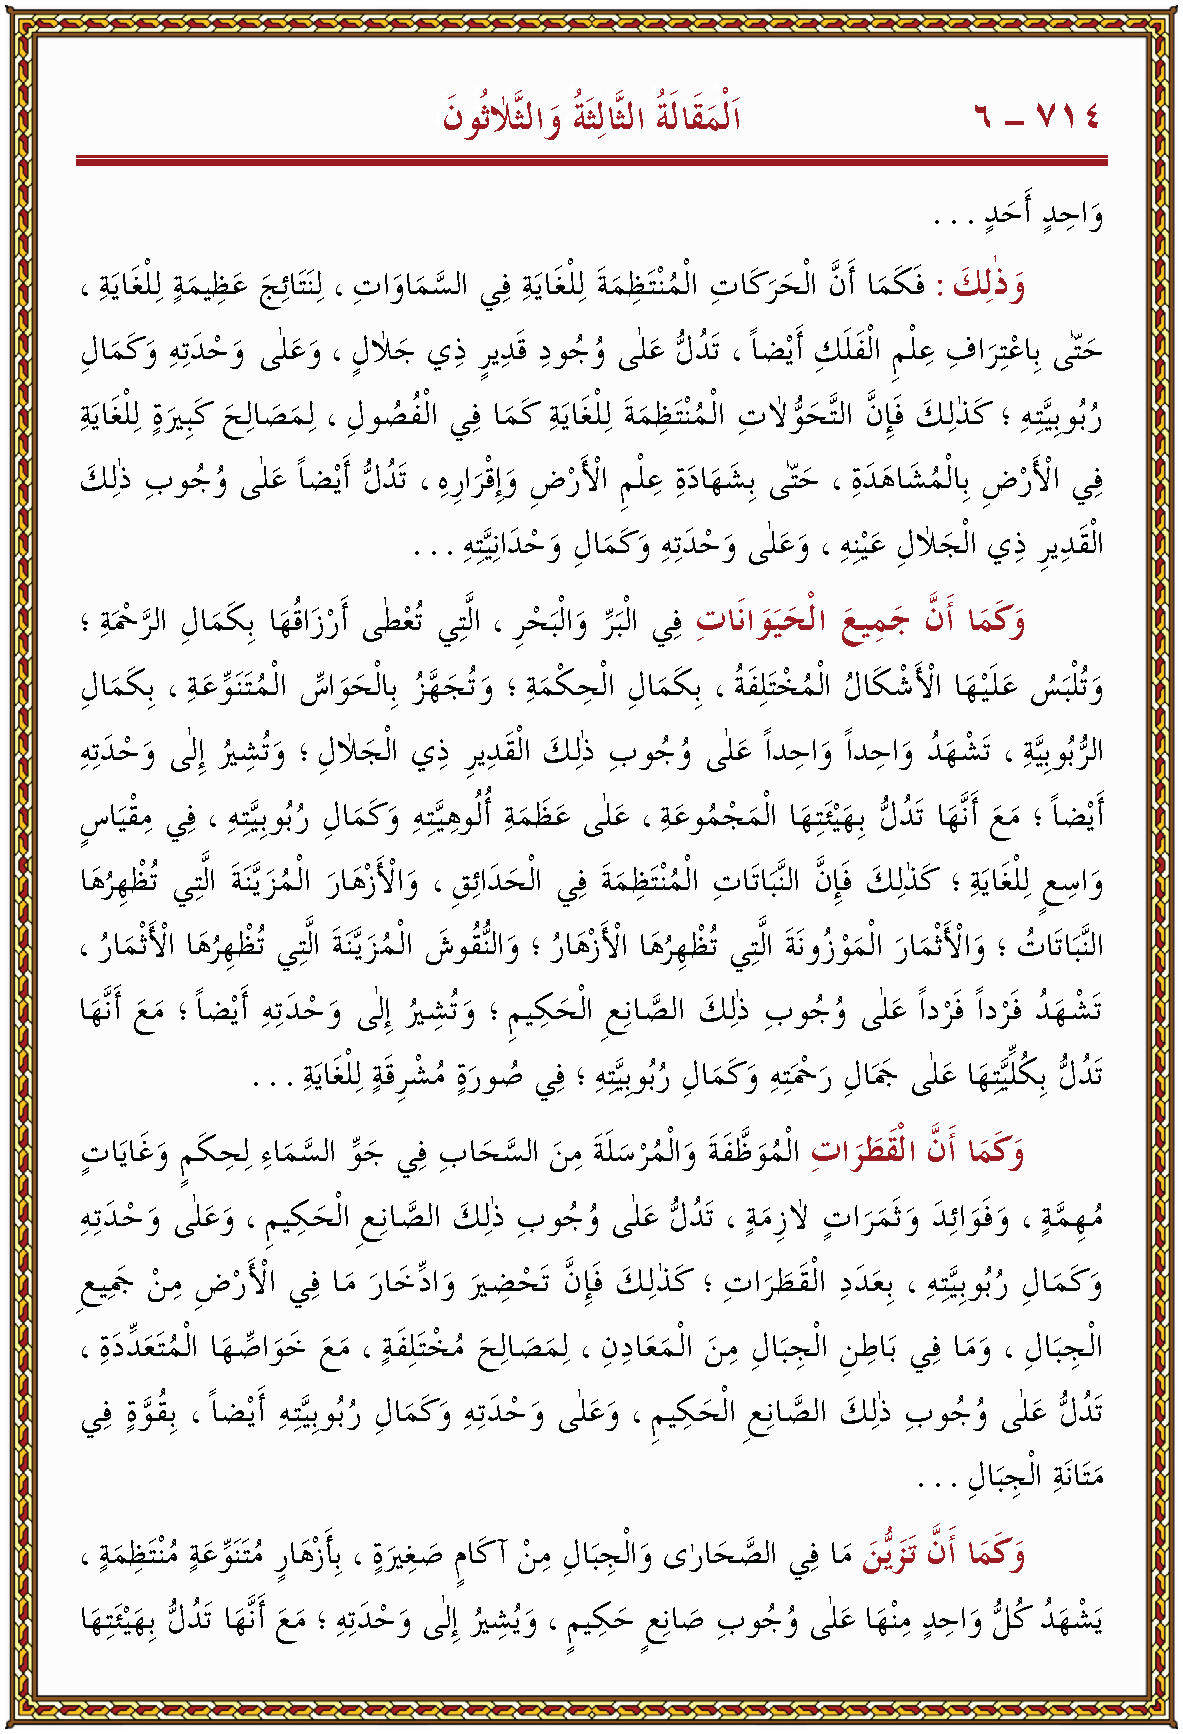 ٧١٤ – ٦ اَلْمَقَالَةُ الثَّالِثَةُ وَالثَّلاٰثُونَ
وَاحِدٍ أَحَدٍ . . .
وَذٰلِكَ : فَكَمَا أَنَّ الْحَرَكَاتِ الْمُنْتَظِمَةَ لِلْغَايَةِ فِي السَّمَاوَاتِ ، لِنَتَائِجَ عَظِيمَةٍ لِلْغَايَةِ ،
حَتّٰى بِاعْتِرَافِ عِلْمِ الْفَلَكِ أَيْضاً ، تَدُلُّ عَلٰى وُجُودِ قَدِيرٍ ذِي جَلاٰلٍ ، وَعَلٰى وَحْدَتِهِ وَكَمَالِ
رُبُوبِيَّتِهِ ؛ كَذٰلِكَ فَإِنَّ التَّحَوُّلاٰتِ الْمُنْتَظِمَةَ لِلْغَايَةِ كَمَا فِي الْفُصُولِ ، لِمَصَالِحَ كَبِيرَةٍ لِلْغَايَةِ
فِي الْأَرْضِ بِالْمُشَاهَدَةِ ، حَتّٰى بِشَهَادَةِ عِلْمِ الْأَرْضِ وَإِقْرَارِهِ ، تَدُلُّ أَيْضاً عَلٰى وُجُوبِ ذٰلِكَ
الْقَدِيرِ ذِي الْجَلاٰلِ عَيْنِهِ ، وَعَلٰى وَحْدَتِهِ وَكَمَالِ وَحْدَانِيَّتِهِ . . .
وَكَمَا أَنَّ جَمِيعَ الْحَيَوَانَاتِ فِي الْبَرِّ وَالْبَحْرِ ، الَّتِي تُعْطٰى أَرْزَاقُهَا بِكَمَالِ الرَّحْمَةِ ؛
وَتُلْبَسُ عَلَيْهَا الْأَشْكَالُ الْمُخْتَلِفَةُ ، بِكَمَالِ الْحِكْمَةِ ؛ وَتُجَهَّزُ بِالْحَوَاسِّ الْمُتَنَوِّعَةِ ، بِكَمَالِ
الرُّبُوبِيَّةِ ، تَشْهَدُ وَاحِداً وَاحِداً عَلٰى وُجُوبِ ذٰلِكَ الْقَدِيرِ ذِي الْجَلاٰلِ ؛ وَتُشِيرُ إِلٰى وَحْدَتِهِ
أَيْضاً ؛ مَعَ أَنَّهَا تَدُلُّ بِهَيْئَتِهَا الْمَجْمُوعَةِ ، عَلٰى عَظَمَةِ أُلُوهِيَّتِهِ وَكَمَالِ رُبُوبِيَّتِهِ ، فِي مِقْيَاسٍ
وَاسِعٍ لِلْغَايَةِ ؛ كَذٰلِكَ فَإِنَّ النَّبَاتَاتِ الْمُنْتَظِمَةَ فِي الْحَدَائِقِ ، وَالْأَزْهَارَ الْمُزَيَّنَةَ الَّتِي تُظْهِرُهَا
النَّبَاتَاتُ ؛ وَالْأَثْمَارَ الْمَوْزُونَةَ الَّتِي تُظْهِرُهَا الْأَزْهَارُ ؛ وَالنُّقُوشَ الْمُزَيَّنَةَ الَّتِي تُظْهِرُهَا الْأَثْمَارُ ،
تَشْهَدُ فَرْداً فَرْداً عَلٰى وُجُوبِ ذٰلِكَ الصَّانِعِ الْحَكِيمِ ؛ وَتُشِيرُ إِلٰى وَحْدَتِهِ أَيْضاً ؛ مَعَ أَنَّهَا
تَدُلُّ بِكُلِّيَّتِهَا عَلٰى جَمَالِ رَحْمَتِهِ وَكَمَالِ رُبُوبِيَّتِهِ ؛ فِي صُورَةٍ مُشْرِقَةٍ لِلْغَايَةِ . . .
وَكَمَا أَنَّ الْقَطَرَاتِ الْمُوَظَّفَةَ وَالْمُرْسَلَةَ مِنَ السَّحَابِ فِي جَوِّ السَّمَاءِ لِحِكَمٍ وَغَايَاتٍ
مُهِمَّةٍ ، وَفَوَائِدَ وَثَمَرَاتٍ لاٰزِمَةٍ ، تَدُلُّ عَلٰى وُجُوبِ ذٰلِكَ الصَّانِعِ الْحَكِيمِ ، وَعَلٰى وَحْدَتِهِ
وَكَمَالِ رُبُوبِيَّتِهِ ، بِعَدَدِ الْقَطَرَاتِ ؛ كَذٰلِكَ فَإِنَّ تَحْضِيرَ وَادِّخَارَ مَا فِي الْأَرْضِ مِنْ جَمِيعِ
الْجِبَالِ ، وَمَا فِي بَاطِنِ الْجِبَالِ مِنَ الْمَعَادِنِ ، لِمَصَالِحَ مُخْتَلِفَةٍ ، مَعَ خَوَاصِّهَا الْمُتَعَدِّدَةِ ،
تَدُلُّ عَلٰى وُجُوبِ ذٰلِكَ الصَّانِعِ الْحَكِيمِ ، وَعَلٰى وَحْدَتِهِ وَكَمَالِ رُبُوبِيَّتِهِ أَيْضاً ، بِقُوَّةٍ فِي
مَتَانَةِ الْجِبَالِ . . .
وَكَمَا أَنَّ تَزَيُّنَ مَا فِي الصَّحَارٰى وَالْجِبَالِ مِنْ آكَامٍ صَغِيرَةٍ ، بِأَزْهَارٍ مُتَنَوِّعَةٍ مُنْتَظِمَةٍ ،
يَشْهَدُ كُلُّ وَاحِدٍ مِنْهَا عَلٰى وُجُوبِ صَانِعٍ حَكِيمٍ ، وَيُشِيرُ إِلٰى وَحْدَتِهِ ؛ مَعَ أَنَّهَا تَدُلُّ بِهَيْئَتِهَا